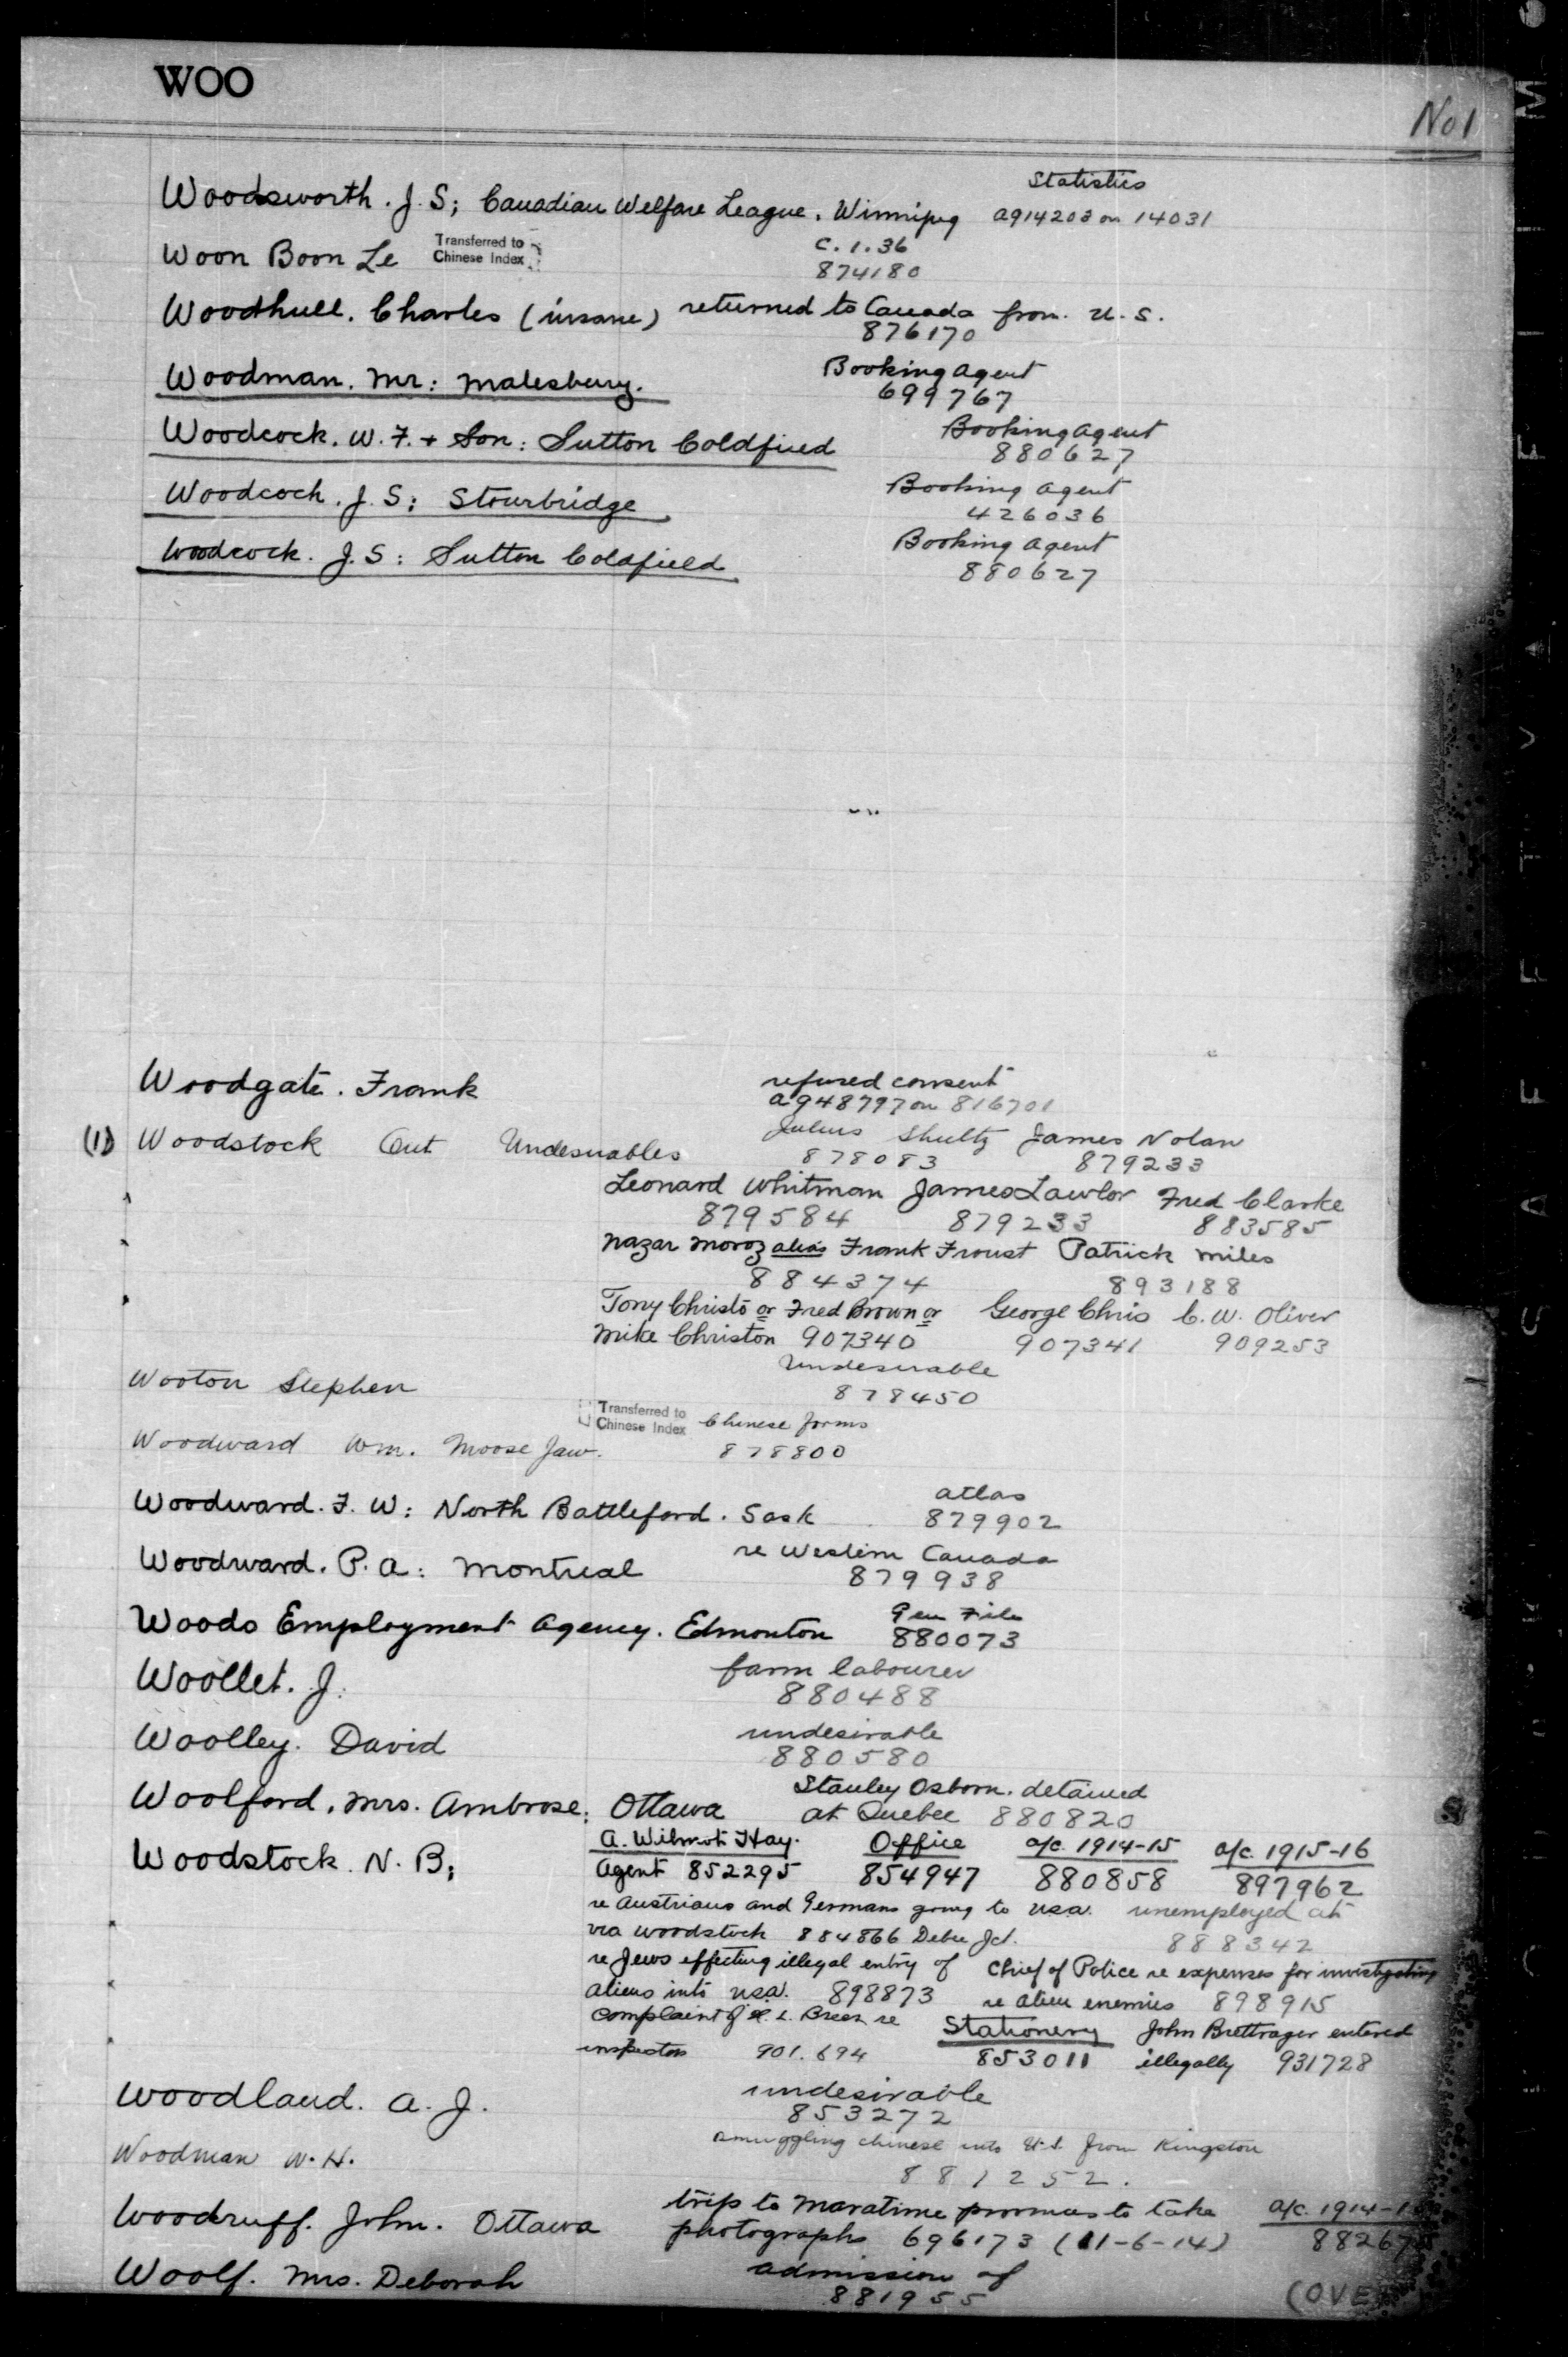 WOO
No 1
Statistics
Woodsworth. J. S; Canadian Welfare League. Winnipeg a914203 on 14031
Woon Boon Le Transferred to Chinese Index C.1.36
874180
Woodhull. Charles (insane) returned to Canada from U.S.
876170
Woodman. Mr: Malesbury. Booking Agent
699767
Woodcock. W. F. + Son: Sutton Coldfied Booking Agent
880627
Woodcock. J. S: Stourbridge Booking Agent
426036
Woodcock. J. S: Sutton Coldfield Booking Agent
880627
Woodgate. Frank refused consent
a948797 on 816701
(1) Woodstock Ont Undesirables Julius Shultz James Nolan
878083 879233
Leonard Whitman James Lawlor Fred Clarke
879584 879233 883585
Nazar Moroz alias Frank Froust Patrick Miles
884374 893188
Tony Christo or Fred Brown or George Chris C. W. Oliver
Mike Christon 907340 907341 909253
Wooton Stephen Undesirable
878450
Transferred to Chinese Index Chinese forms
Woodward Wm. Moose Jaw. 878800
Woodward. F. W: North Battleford. Sask atlas
879902
Woodward. P. A: Montreal re Western Canada
879938
Woods Employment Agency. Edmonton Gen File
880073
Woollet. J. farm labourer
880488
Woolley. David undesirable
880580
Woolford. Mrs. Ambrose: Ottawa Stanley Osborn. detained
at Quebec 880820
Woodstock. N. B; A. Wilmot Hay. Office a/c. 1914-15 a/c. 1915-16
Agent 852295 854947 880858 897962
re Austrians and Germans going to USA. unemployed at
via Woodstock 884866 Debec Jct. 888342
re Jews effecting illegal entry of Chief of Police re expenses for investigating
aliens into USA. 898873 re alien enemies 898915
complaint of L. Breen re Stationery John Brettrager entered
inspectors 901.694 853011 illegally 931728
Woodland. A. J. undesirable
853272
Woodman W. H. smuggling chinese into U.S. from Kingston
881252.
Woodruff. John. Ottawa trip to Maratime provinces to take a/c. 1914-1
photographs 696173 (11-6-14) 8826
Woolf. Mrs. Deborah admission of
881955
(OVE